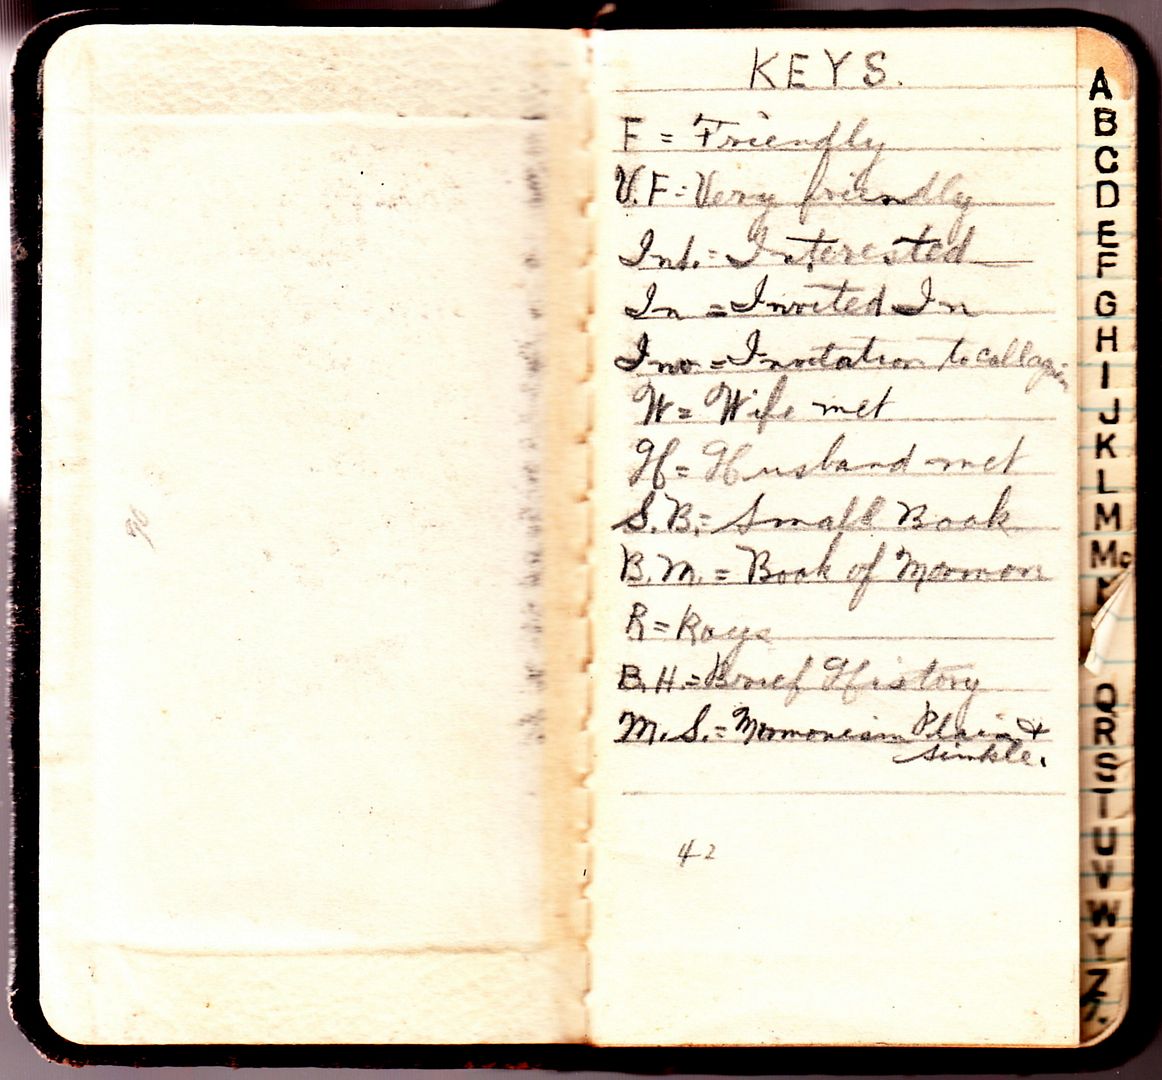 KEYS.
F = Friendly
V.F = Very friendly
Int. = Interested
In = Invited In
Inv. = Invitation to call again
W = Wife met
H = Husband met
S.B. = Small Book
B.M. = Book of Mormon
R = Rays
B.H. = Brief History
M.S. = Mormonism Plain &
simkle.
42
A
B
C
D
E
F
G
H
I
J
K
L
M
Mc
Q
R
S
T
U
V
W
Y
Z